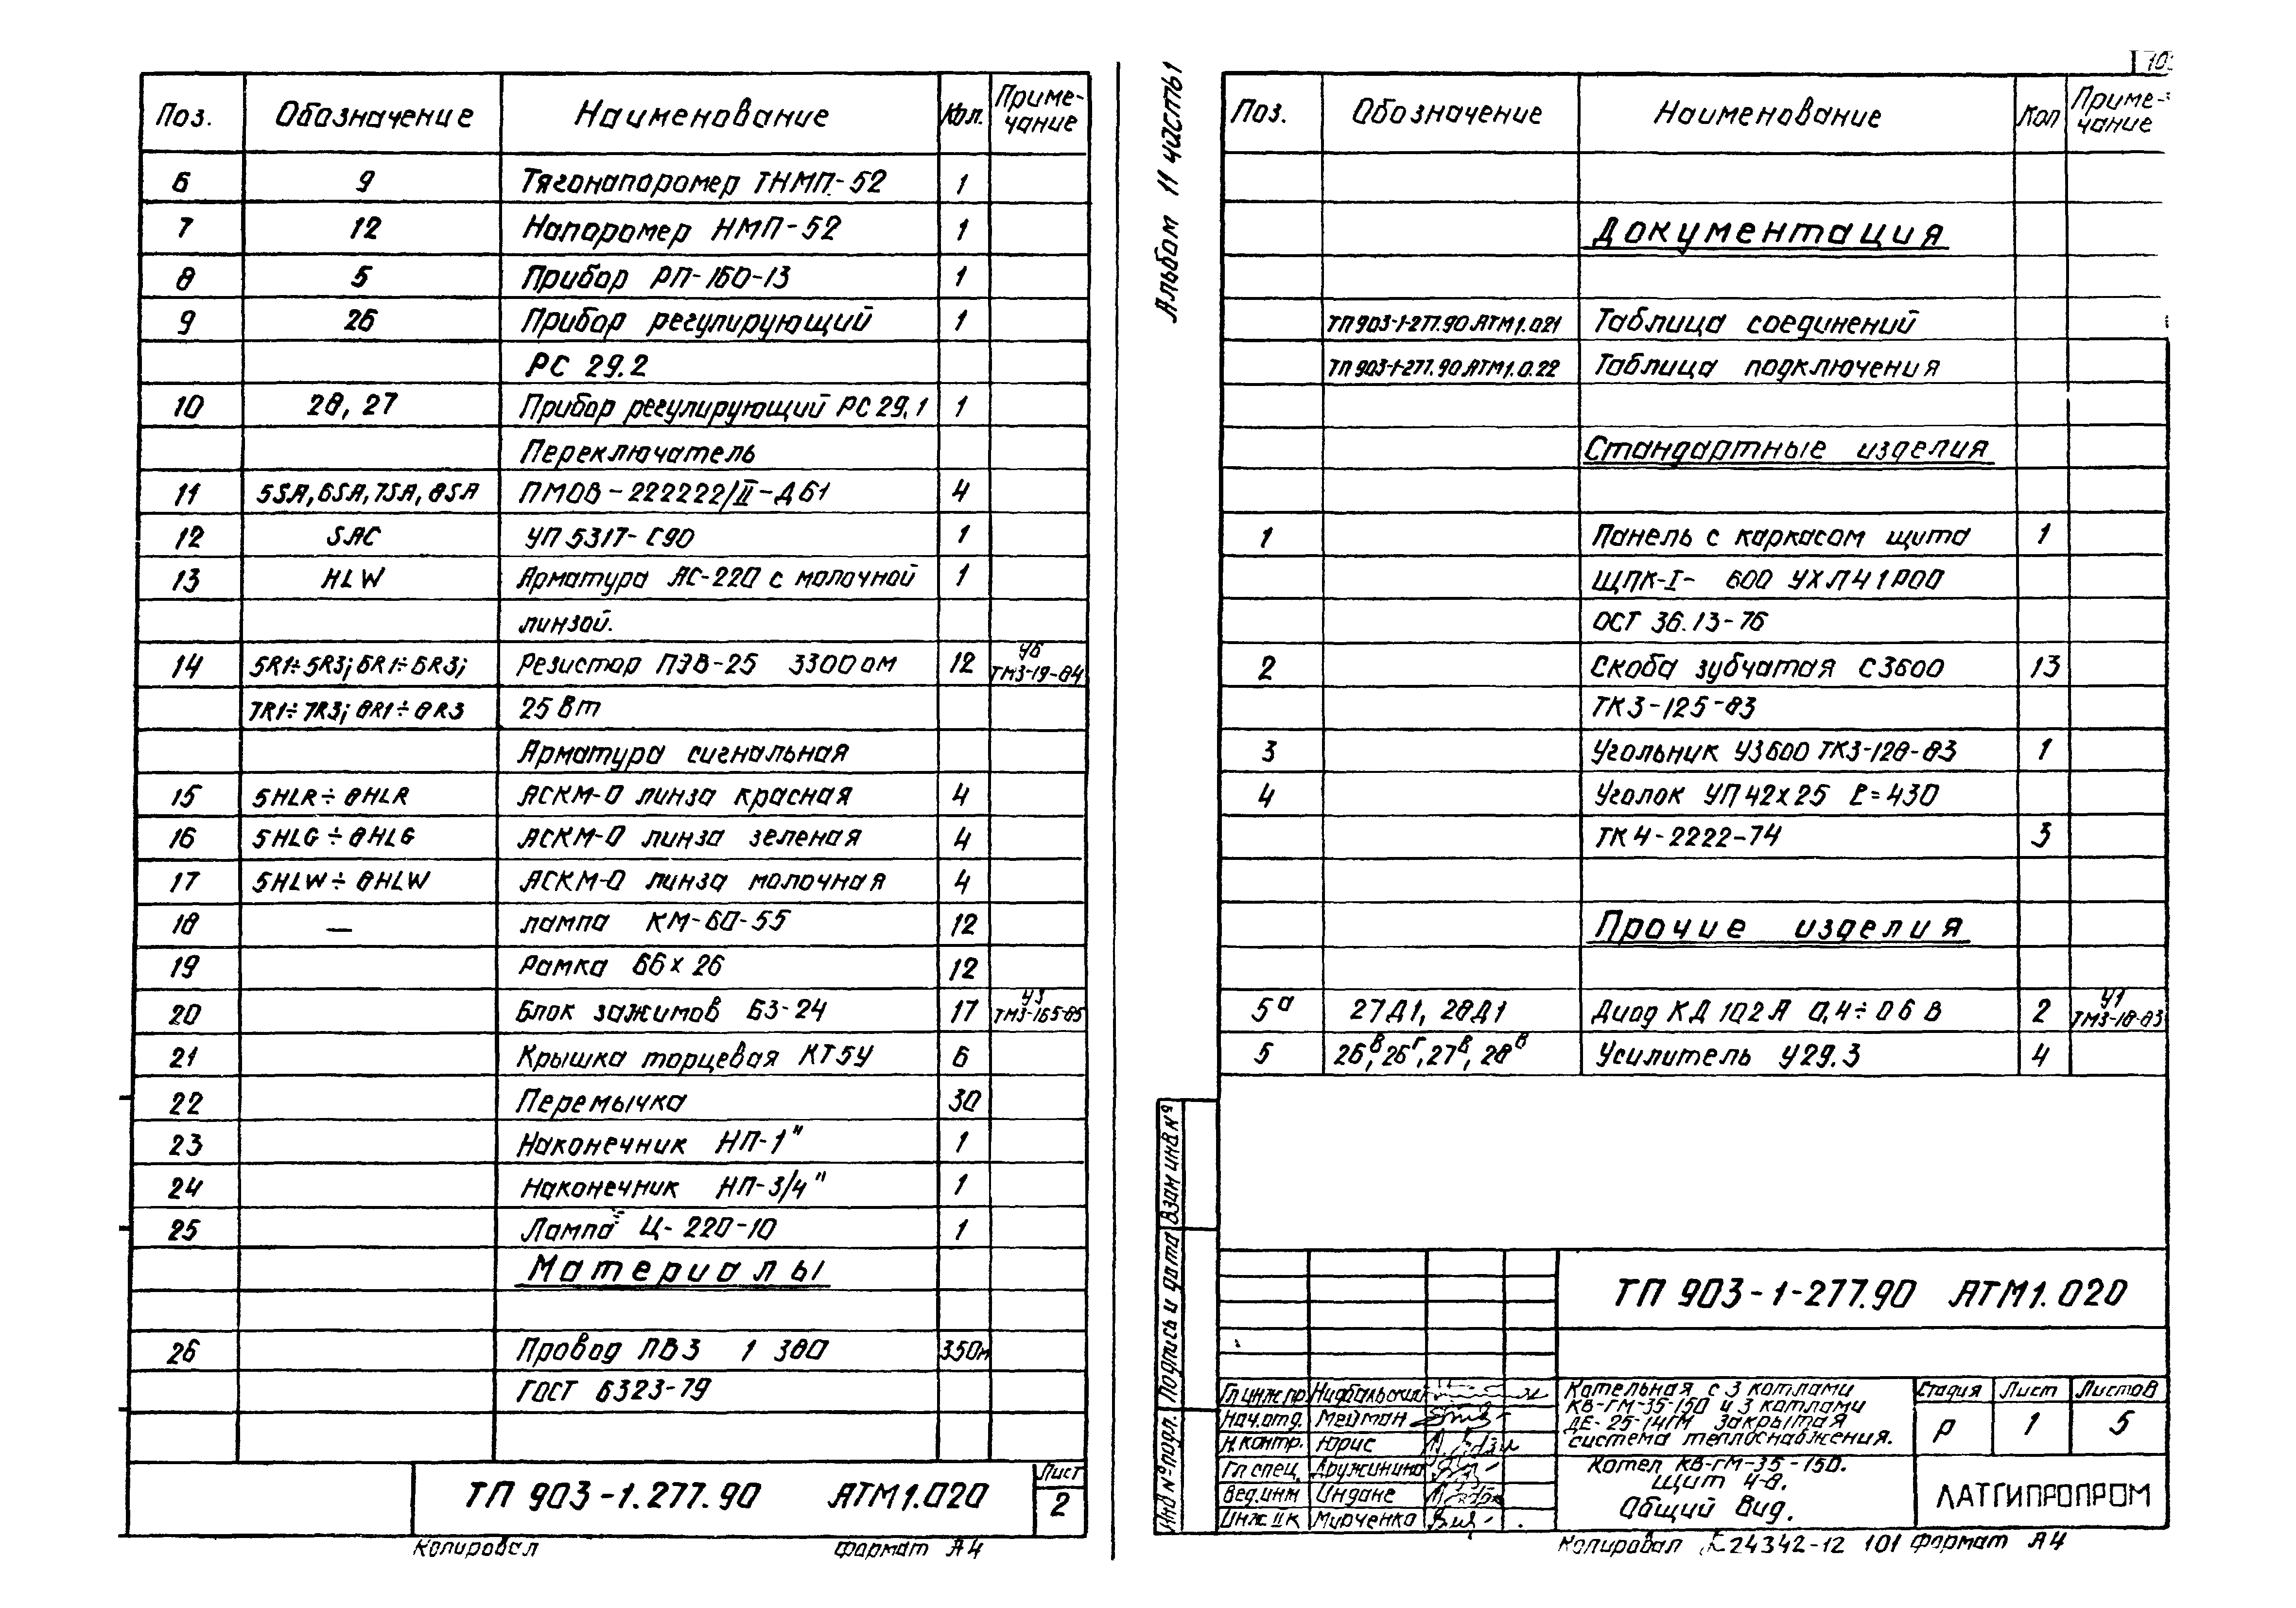 Поз. Обозначение Наименование Кол. Приме-
чание
6 9 Тягонапоромер ТНМП-52 1
7 12 Напоромер НМП-52 1
8 5 Прибор РП-160-13 1
9 26 Прибор регулирующий 1
РС 29.2
10 28, 27 Прибор регулирующий РС 29.1 1
Переключатель
11 5SA, 6SA, 7SA, 8SA ПМОВ-222222/II-Д61 4
12 SAC УП 5317-С90 1
13 HLW Арматура АС-220 с молочной 1
линзой.
14 5R1÷5R3; 6R1÷6R3; Резистор ПЭВ-25 3300 ом 12 У6
ТМ3-19-84
7R1÷7R3; 8R1÷8R3 25 Вт
Арматура сигнальная
15 5HLR÷8HLR АСКМ-0 линза красная 4
16 5HLG÷8HLG АСКМ-0 линза зеленая 4
17 5HLW÷8HLW АСКМ-0 линза молочная 4
18 — лампа КМ-60-55 12
19 Рамка 66x26 12
20 Блок зажимов БЗ-24 17 У3
ТМ3-165-85
21 Крышка торцевая КТ5У 6
22 Перемычка 30
23 Наконечник НП-1" 1
24 Наконечник НП-3/4" 1
25 Лампа Ц-220-10 1
Материалы
26 Провод ПВ3 1 380 350м
ГОСТ 6323-79
ТП 903-1.277.90 АТМ1.020
Лист
2
Копировал Формат А4
Альбом 11 часть 1
Поз. Обозначение Наименование Кол Приме-
чание
Документация
ТП 903-1-277.90 АТМ1.021 Таблица соединений
ТП 903-1-277.90 АТМ1.0.22 Таблица подключения
Стандартные изделия
1 Панель с каркасом щита 1
ЩПК-I- 600 УХЛ41Р00
ОСТ 36.13-76
2 Скоба зубчатая С3600 13
ТК3-125-83
3 Угольник У3600 ТК3-128-83 1
4 Уголок УП 42x25 ℓ=430
ТК4-2222-74 3
Прочие изделия
5а 27Д1, 28Д1 Диод КД 102А 0,4÷06 В 2 У1
ТМ3-18-83
5 26в, 26г, 27в, 28в Усилитель У29.3 4
Взам инв №
Подпись и дата
Инв № подл.
ТП 903-1-277.90 АТМ1.020
Гл инж пр Нидбальский
Нач.отд. Мейтман
Н.контр. Юрис
Гл спец. Дружинина
Вед.инж Индане
Инж II к Мирченко
Котельная с 3 котлами
КВ-ГМ-35-150 и 3 котлами
ДЕ-25-14ГМ Закрытая
система теплоснабжения.
Котел КВ-ГМ-35-150.
Щит 4-8.
Общий вид.
Стадия Лист Листов
Р 1 5
ЛАТГИПРОПРОМ
Копировал 24342-12 101 Формат А4